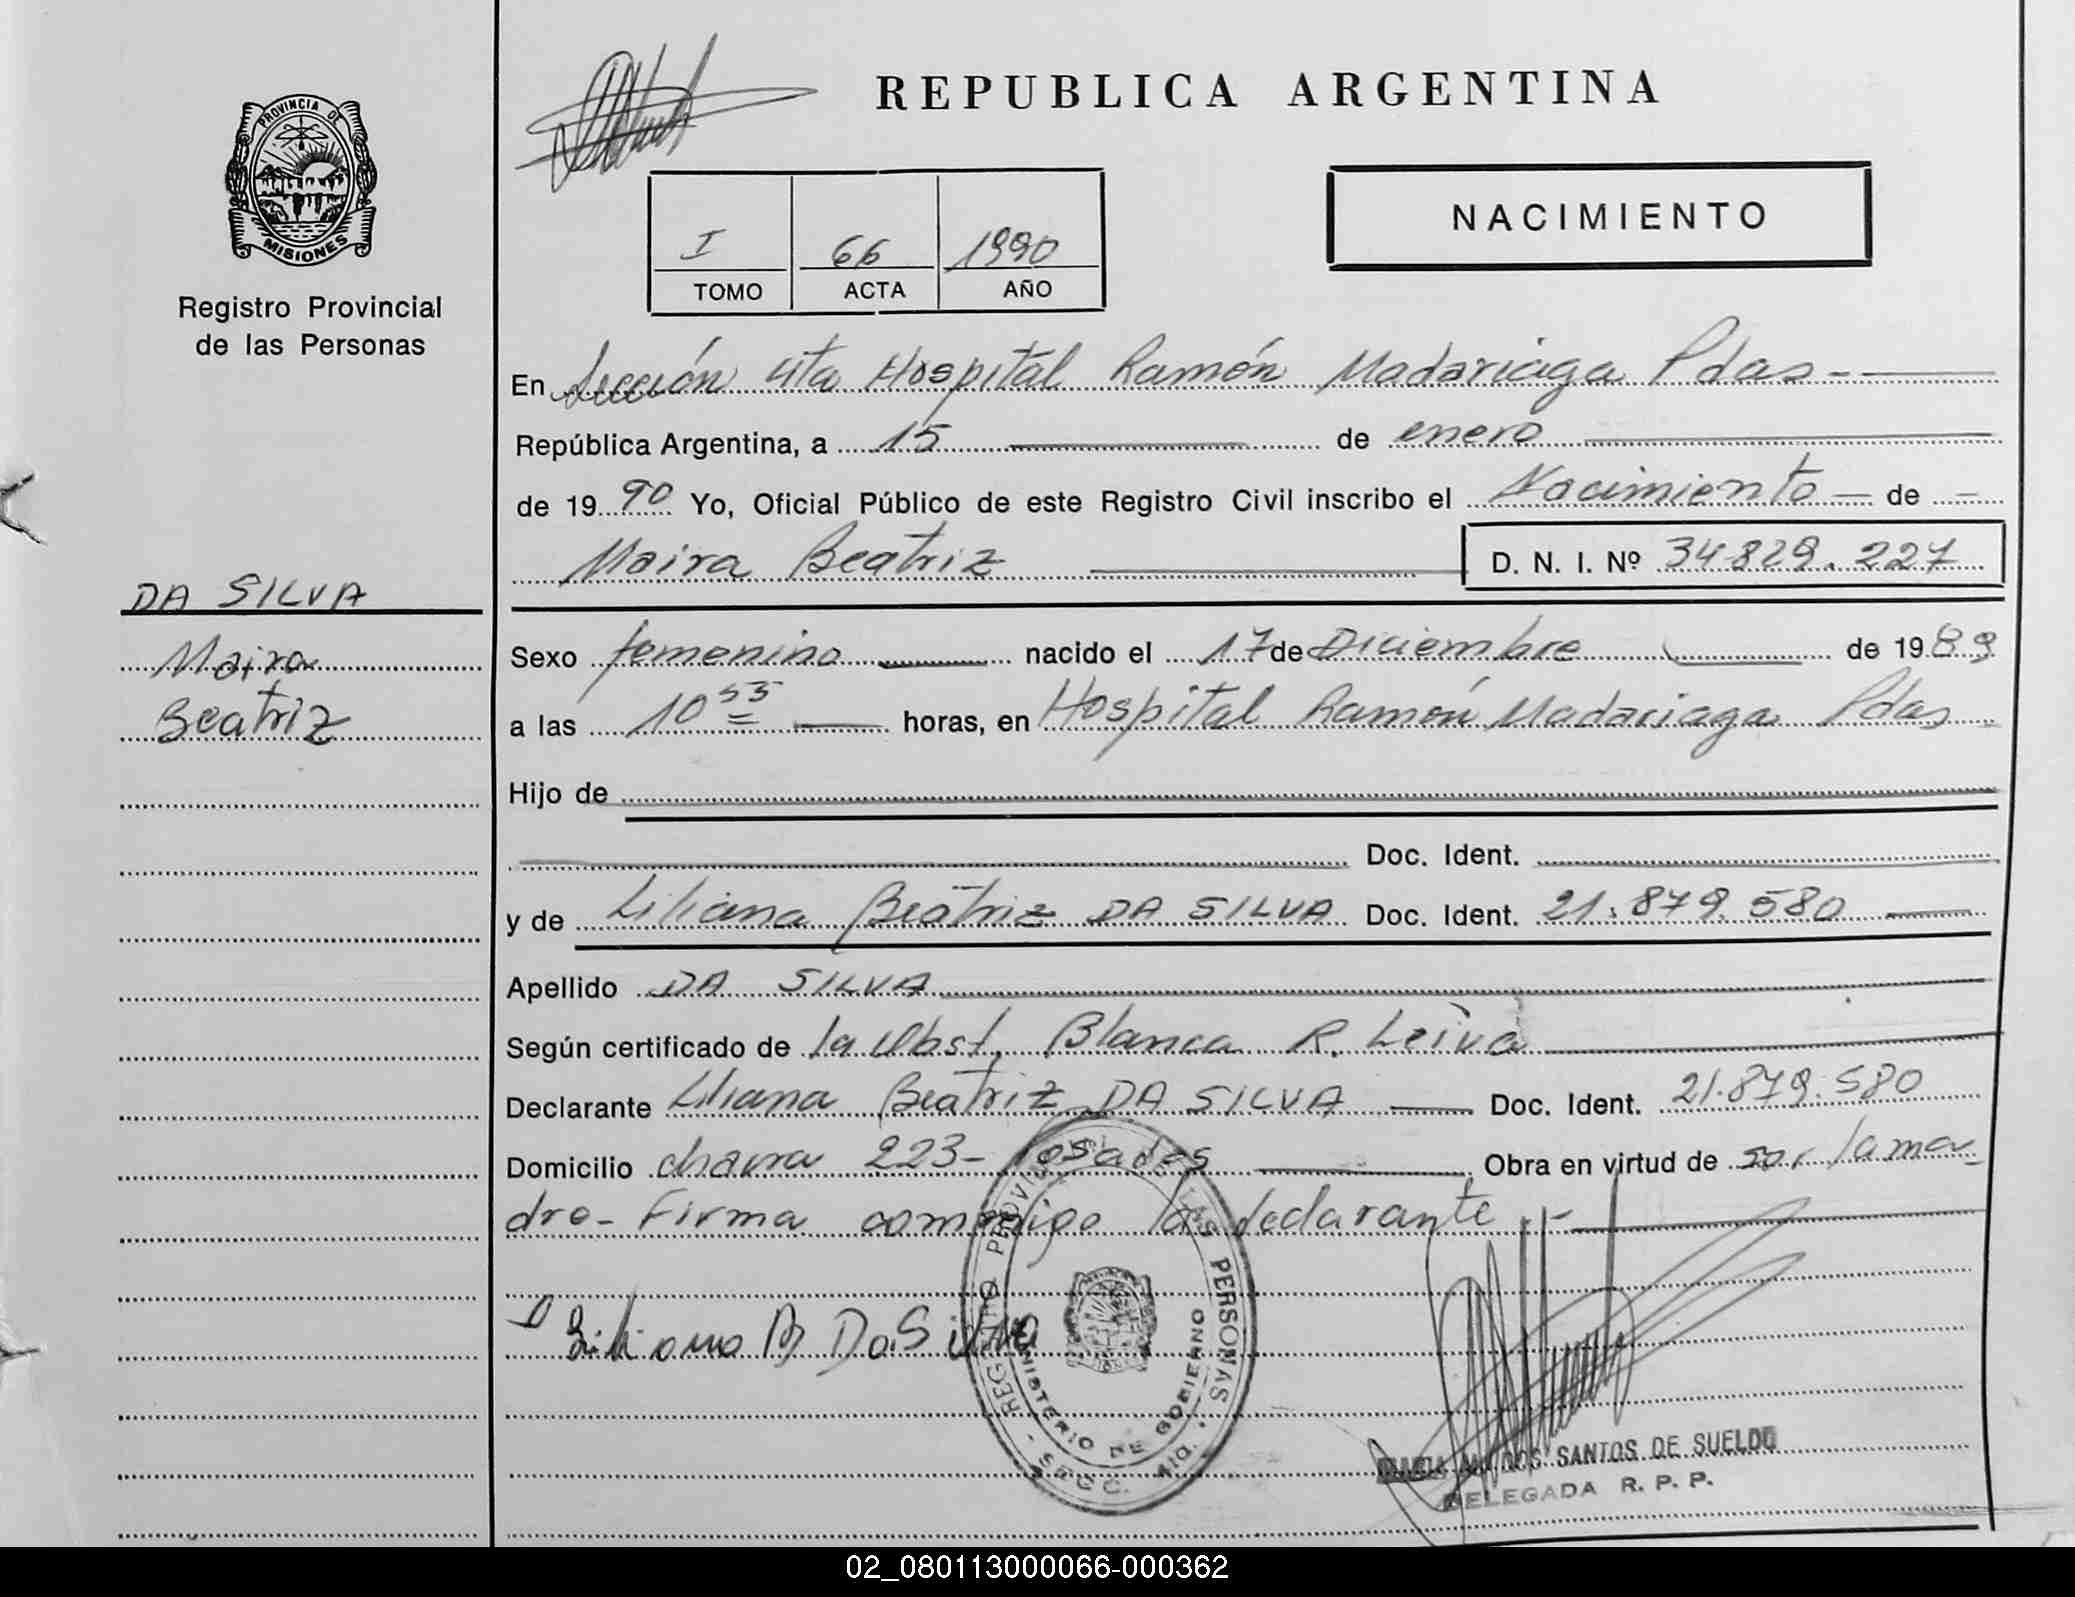 PROVINCIA DE
MISIONES
Registro Provincial
de las Personas
DA SILVA
Maira
Beatriz
REPUBLICA ARGENTINA
I 66 1990
TOMO ACTA AÑO
NACIMIENTO
En Sección 4ta Hospital Ramón Madariaga Pdas -
República Argentina, a 15 de enero
de 19 90 Yo, Oficial Público de este Registro Civil inscribo el Nacimiento de
Maira Beatriz D. N. I. Nº 34.829.227
Sexo femenino nacido el 17 de Diciembre de 19 89
a las 10 55 horas, en Hospital Ramón Madariaga Pdas
Hijo de
Doc. Ident.
y de Liliana Beatriz DA SILVA Doc. Ident. 21.879.580
Apellido DA SILVA
Según certificado de la Obst. Blanca R. Leiva
Declarante Liliana Beatriz DA SILVA Doc. Ident. 21.879.580
Domicilio chacra 223- Posadas Obra en virtud de ser la ma-
dre- Firma conmigo la declarante.-
Liliana B DaSilva
REGISTRO PROVINCIAL DE LAS PERSONAS
MINISTERIO DE GOBIERNO
SECC. 4ta.
DOS SANTOS DE SUELDO
DELEGADA R. P. P.
02_080113000066-000362